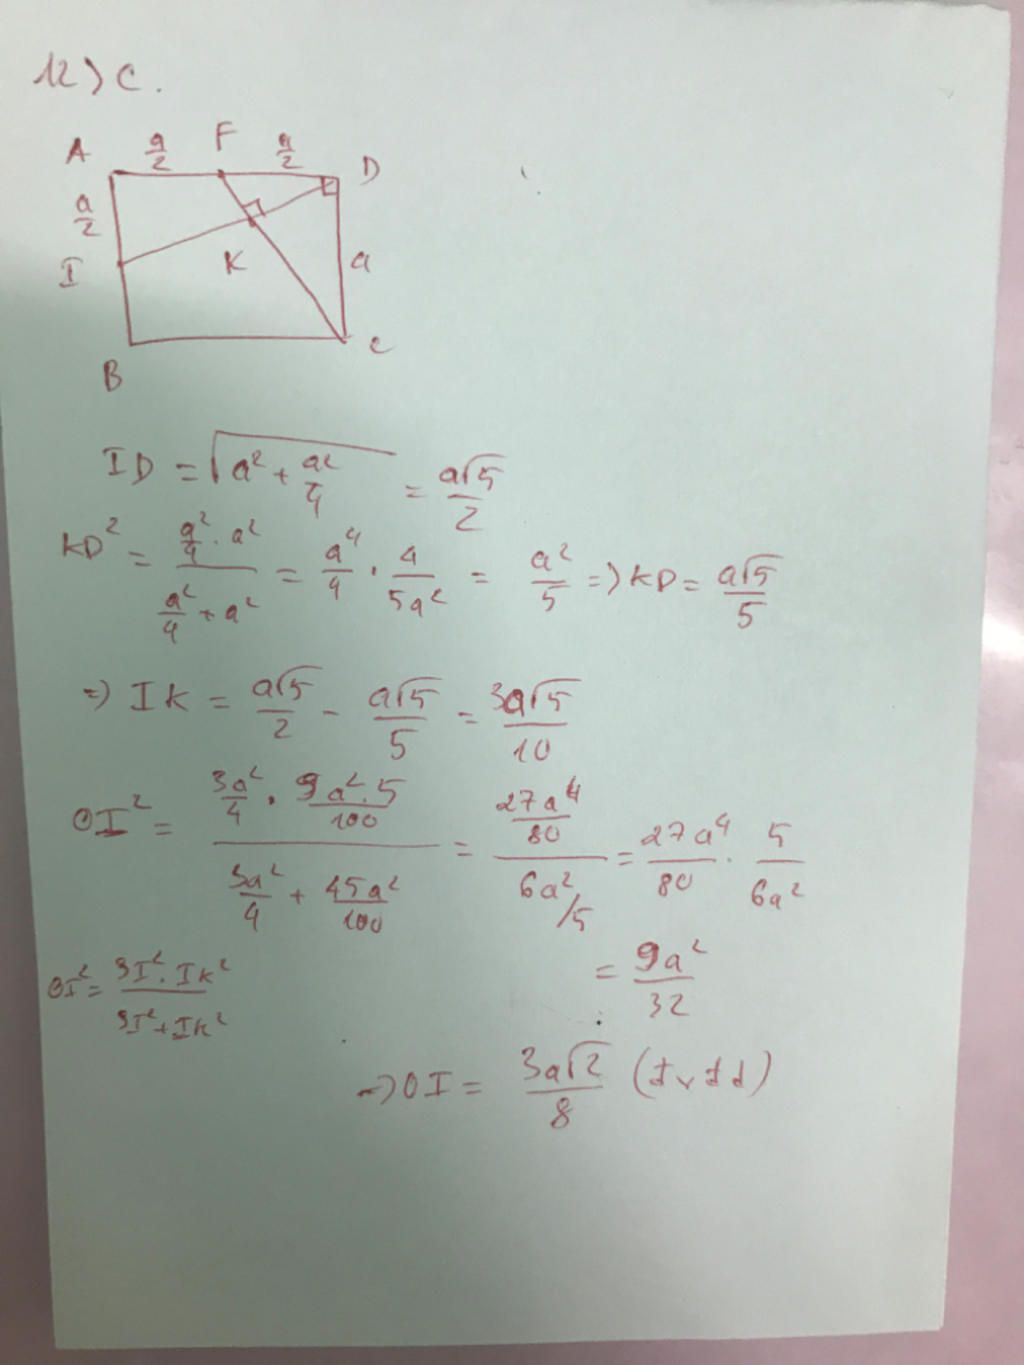 12) C.
A a/2 F a/2 D
a/2
I K a
B C
ID = √(a² + a²/4) = a√5/2
KD² = (a²/4 . a²)/(a²/4 + a²) = a⁴/4 . 4/5a² = a²/5 => KD = a√5/5
=> IK = a√5/2 - a√5/5 = 3a√5/10
OI² = (3a²/4 . 9a².5/100)/(3a²/4 + 45a²/100) = (27a⁴/80)/(6a²/5) = 27a⁴/80 . 5/6a²
= 9a²/32
OI² = (SI² . IK²)/(SI² + IK²)
=> OI = 3a√2/8 (đvđd)